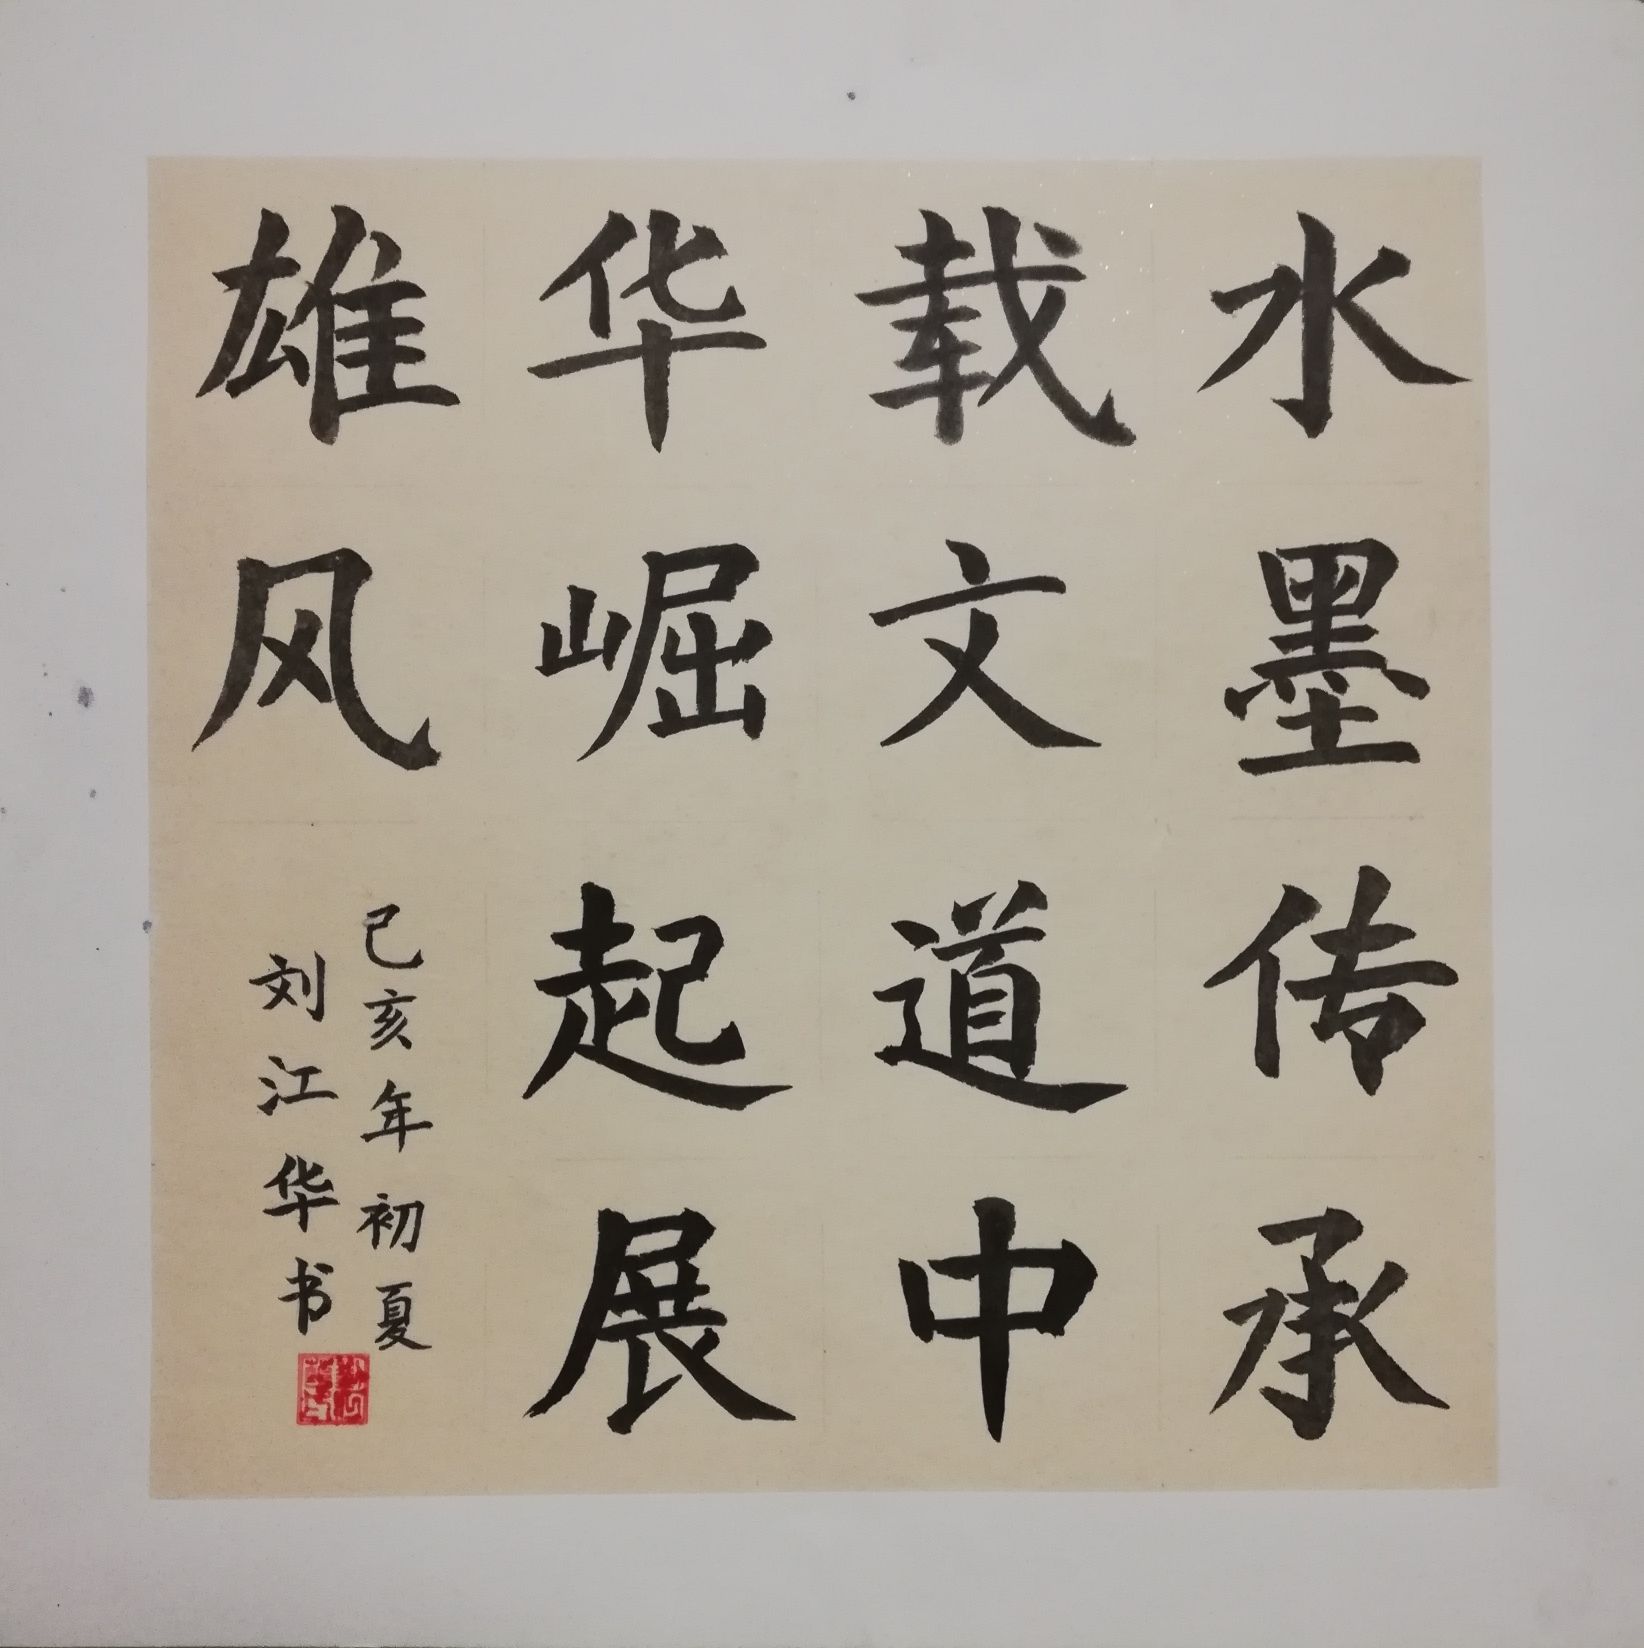 水墨传承
载文道中
华崛起展
雄风
己亥年初夏
刘江华书